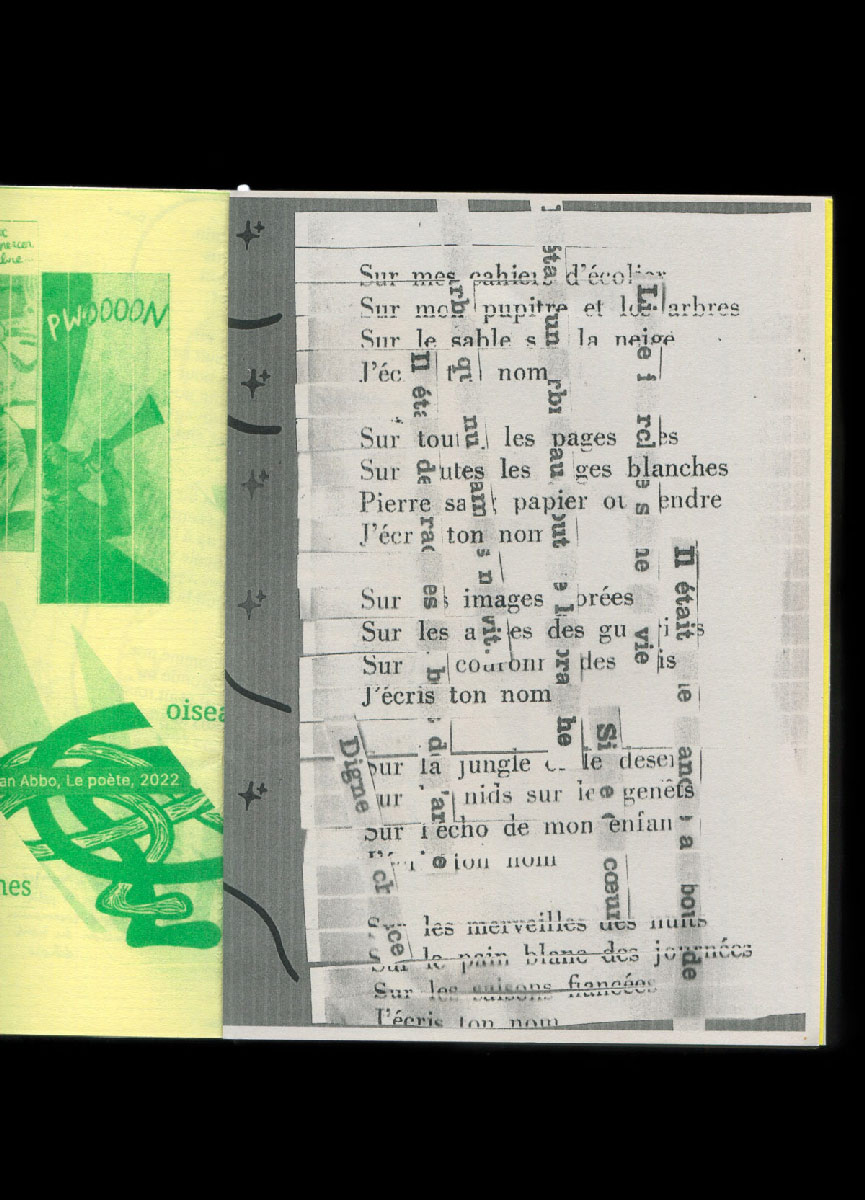 PWOOOON
oisea
an Abbo, Le poète, 2022
nes
Sur mes cahiers d'écolier
Sur mon pupitre et les arbres
Sur le sable s la neige
J'éc nom
Sur tout les pages es
Sur utes les ges blanches
Pierre sa papier ou endre
J'écr ton nom
Sur s images orées
Sur les a es des gu i s
Sur couronn des is
J'écris ton nom
Sur la jungle le deser
ur nids sur les genêts
Sur l'écho de mon enfan
ton nom
les merveilles des nuits
Sur le pain blanc des journées
Sur les saisons fiancées
J'écris ton nom
Il éta de rac es b d'ar e
rb qu nu am s n vit.
éta un rbr au out e la bra he
Le e rcl e s ne vie
Il était e and a bou de
Si e cœur
Digne cl ice